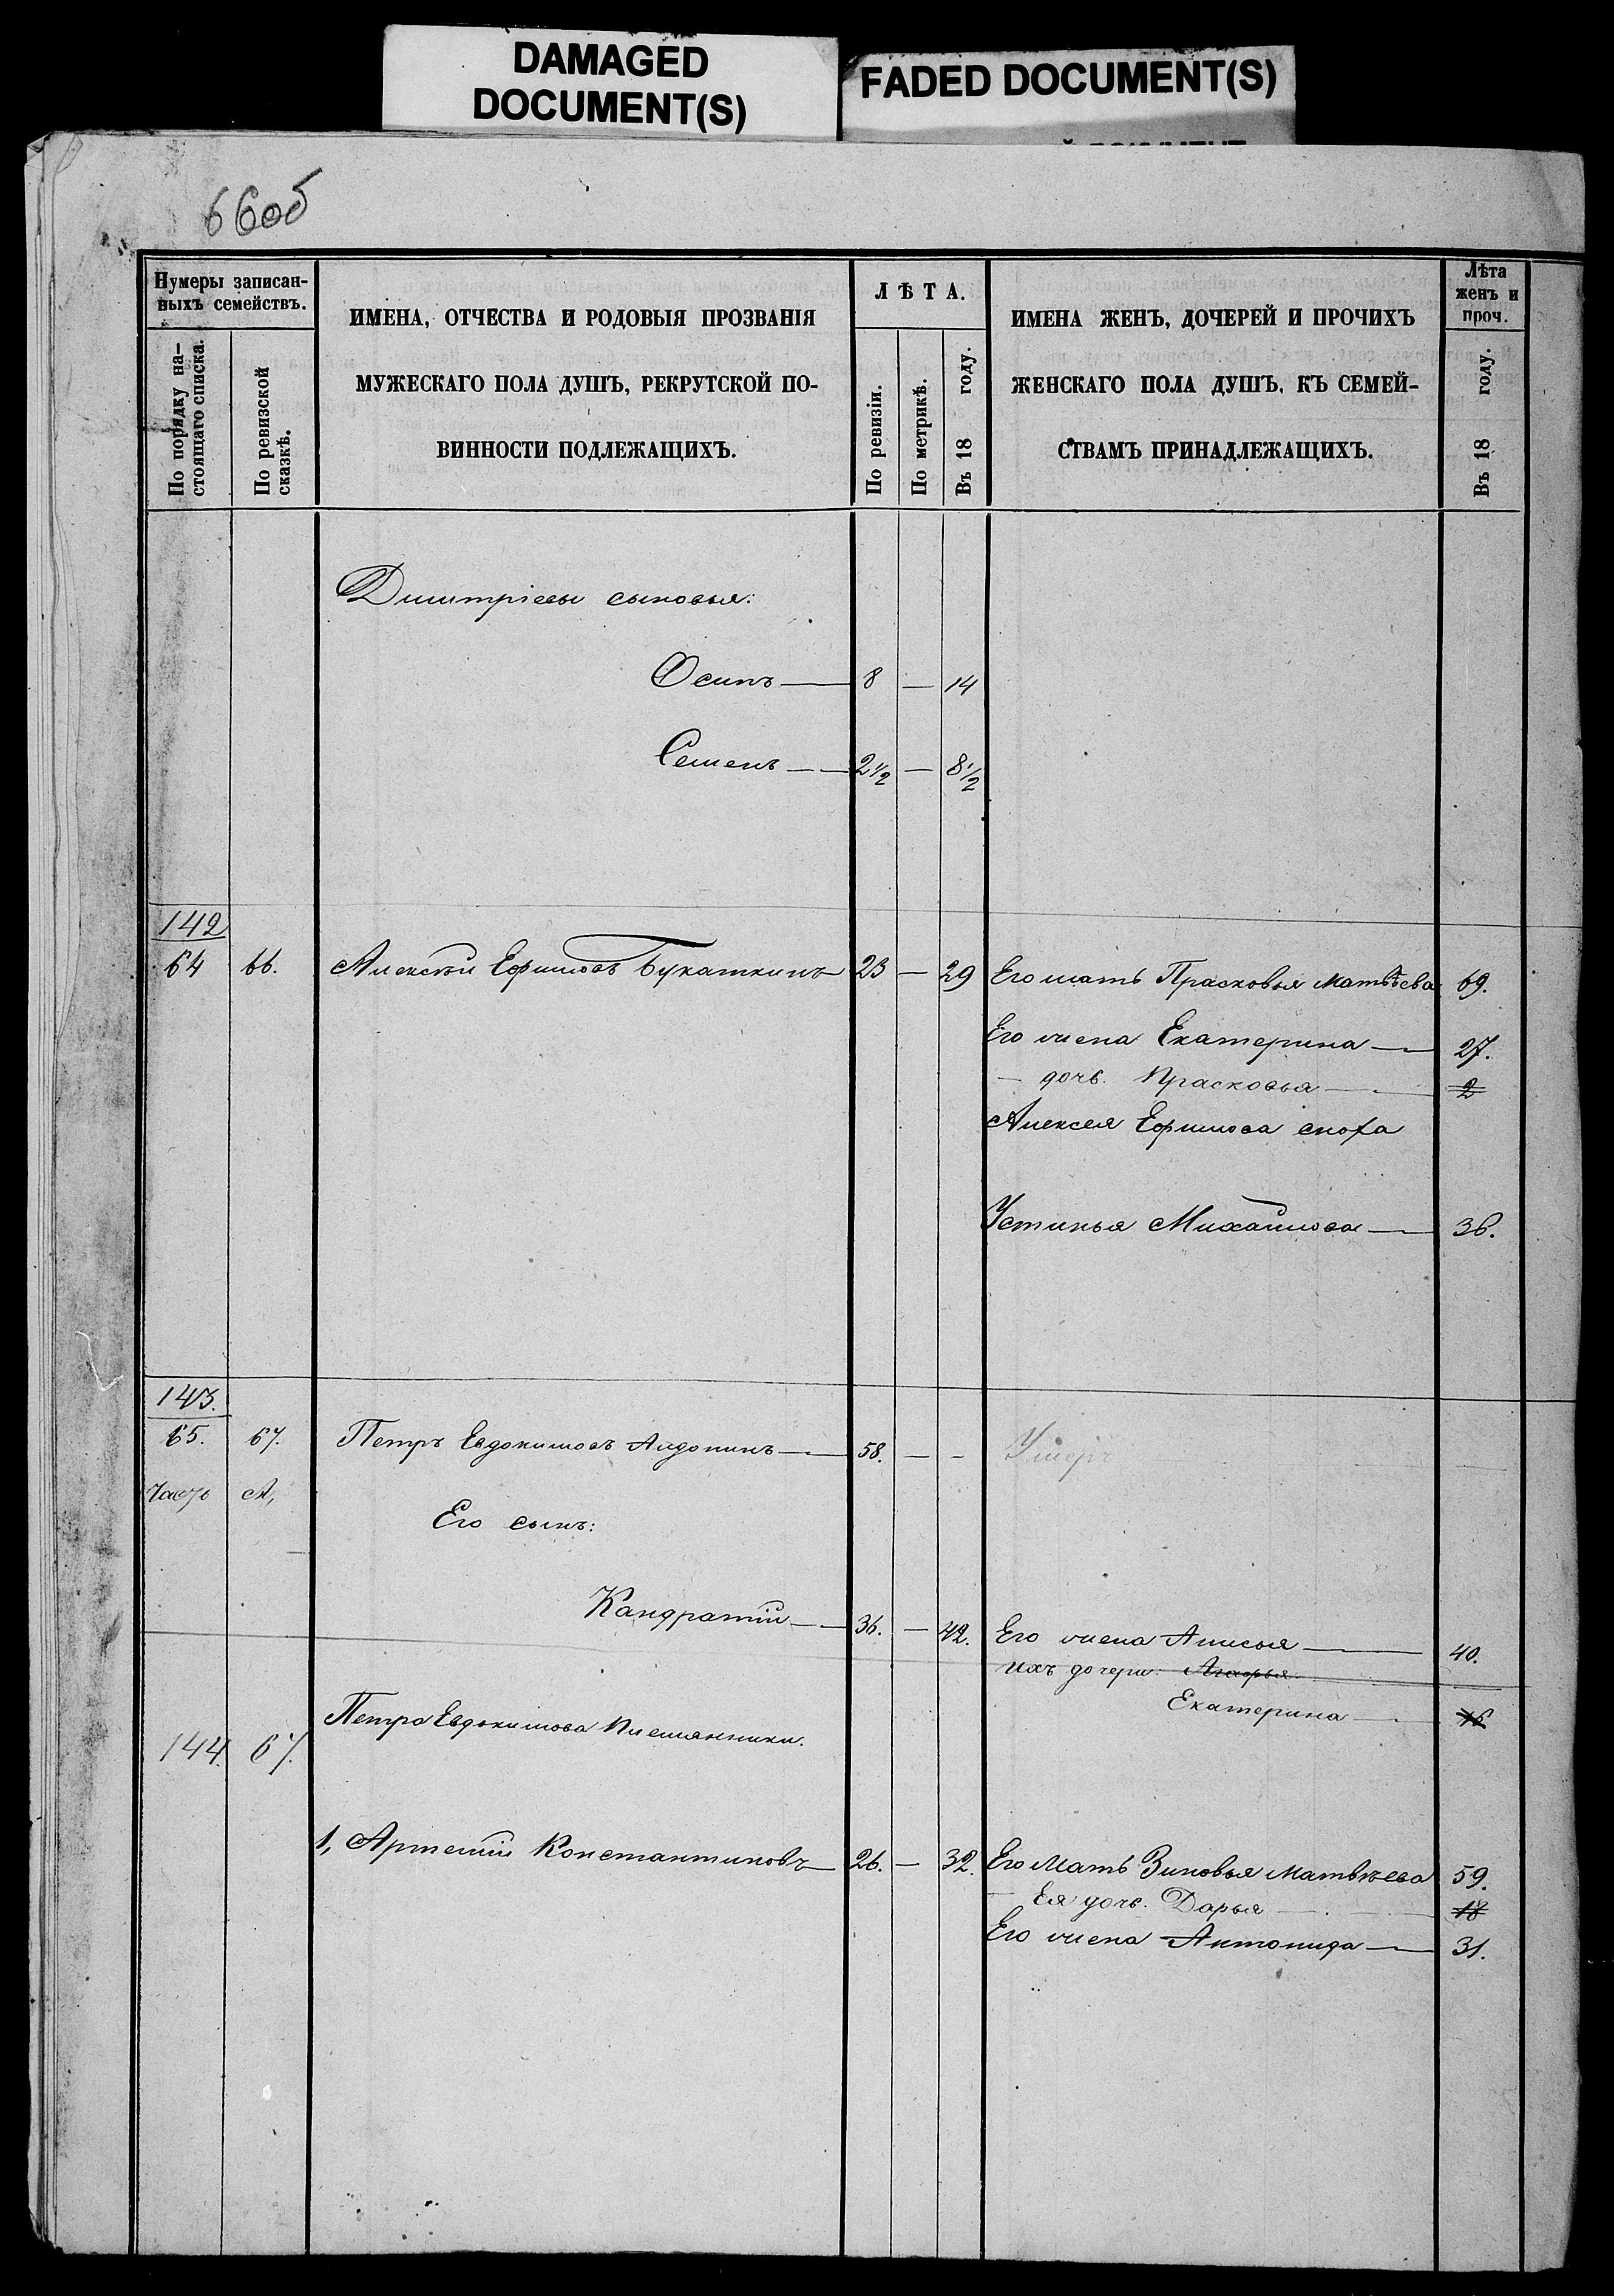 DAMAGED
DOCUMENT(S)
FADED DOCUMENT(S)
66об
Нумеры записан-
ныхъ семействъ.
По порядку на-
стоящаго списка.
По ревизской
сказкѣ.
ИМЕНА, ОТЧЕСТВА И РОДОВЫЯ ПРОЗВАНІЯ
МУЖЕСКАГО ПОЛА ДУШЪ, РЕКРУТСКОЙ ПО-
ВИННОСТИ ПОДЛЕЖАЩИХЪ.
ЛѢТА.
По ревизіи.
По метрикѣ.
Въ 18 году.
ИМЕНА ЖЕНЪ, ДОЧЕРЕЙ И ПРОЧИХЪ
ЖЕНСКАГО ПОЛА ДУШЪ, КЪ СЕМЕЙ-
СТВАМЪ ПРИНАДЛЕЖАЩИХЪ.
Лѣта
женъ и
проч.
Въ 18 году.
Дмитріевы сыновья:
Осипъ — 8 — 14
Семенъ — 2½ — 8½
142
64 66. Алексѣй Ефимовъ Букаткинъ 23 — 29 Его мать Прасковья Матвѣева 69.
Его жена Екатерина — 27.
— дочь Прасковья — 2
Алексея Ефимова сноха
Устинья Михайлова — 36.
143.
65. 67. Петръ Евдокимовъ Алдонинъ — 58. — - Умеръ
Часть А,
Его сынъ:
Кандратій — 36. — 42. Его жена Анисья — 40.
ихъ дочери:
Екатерина — 16
Петра Евдокимова племянники.
144. 67.
1, Артемій Константиновъ 26. — 32. Его мать Зиновья Матвѣева 59.
Ея дочь Дарья — 18
Его жена Антонида — 31.